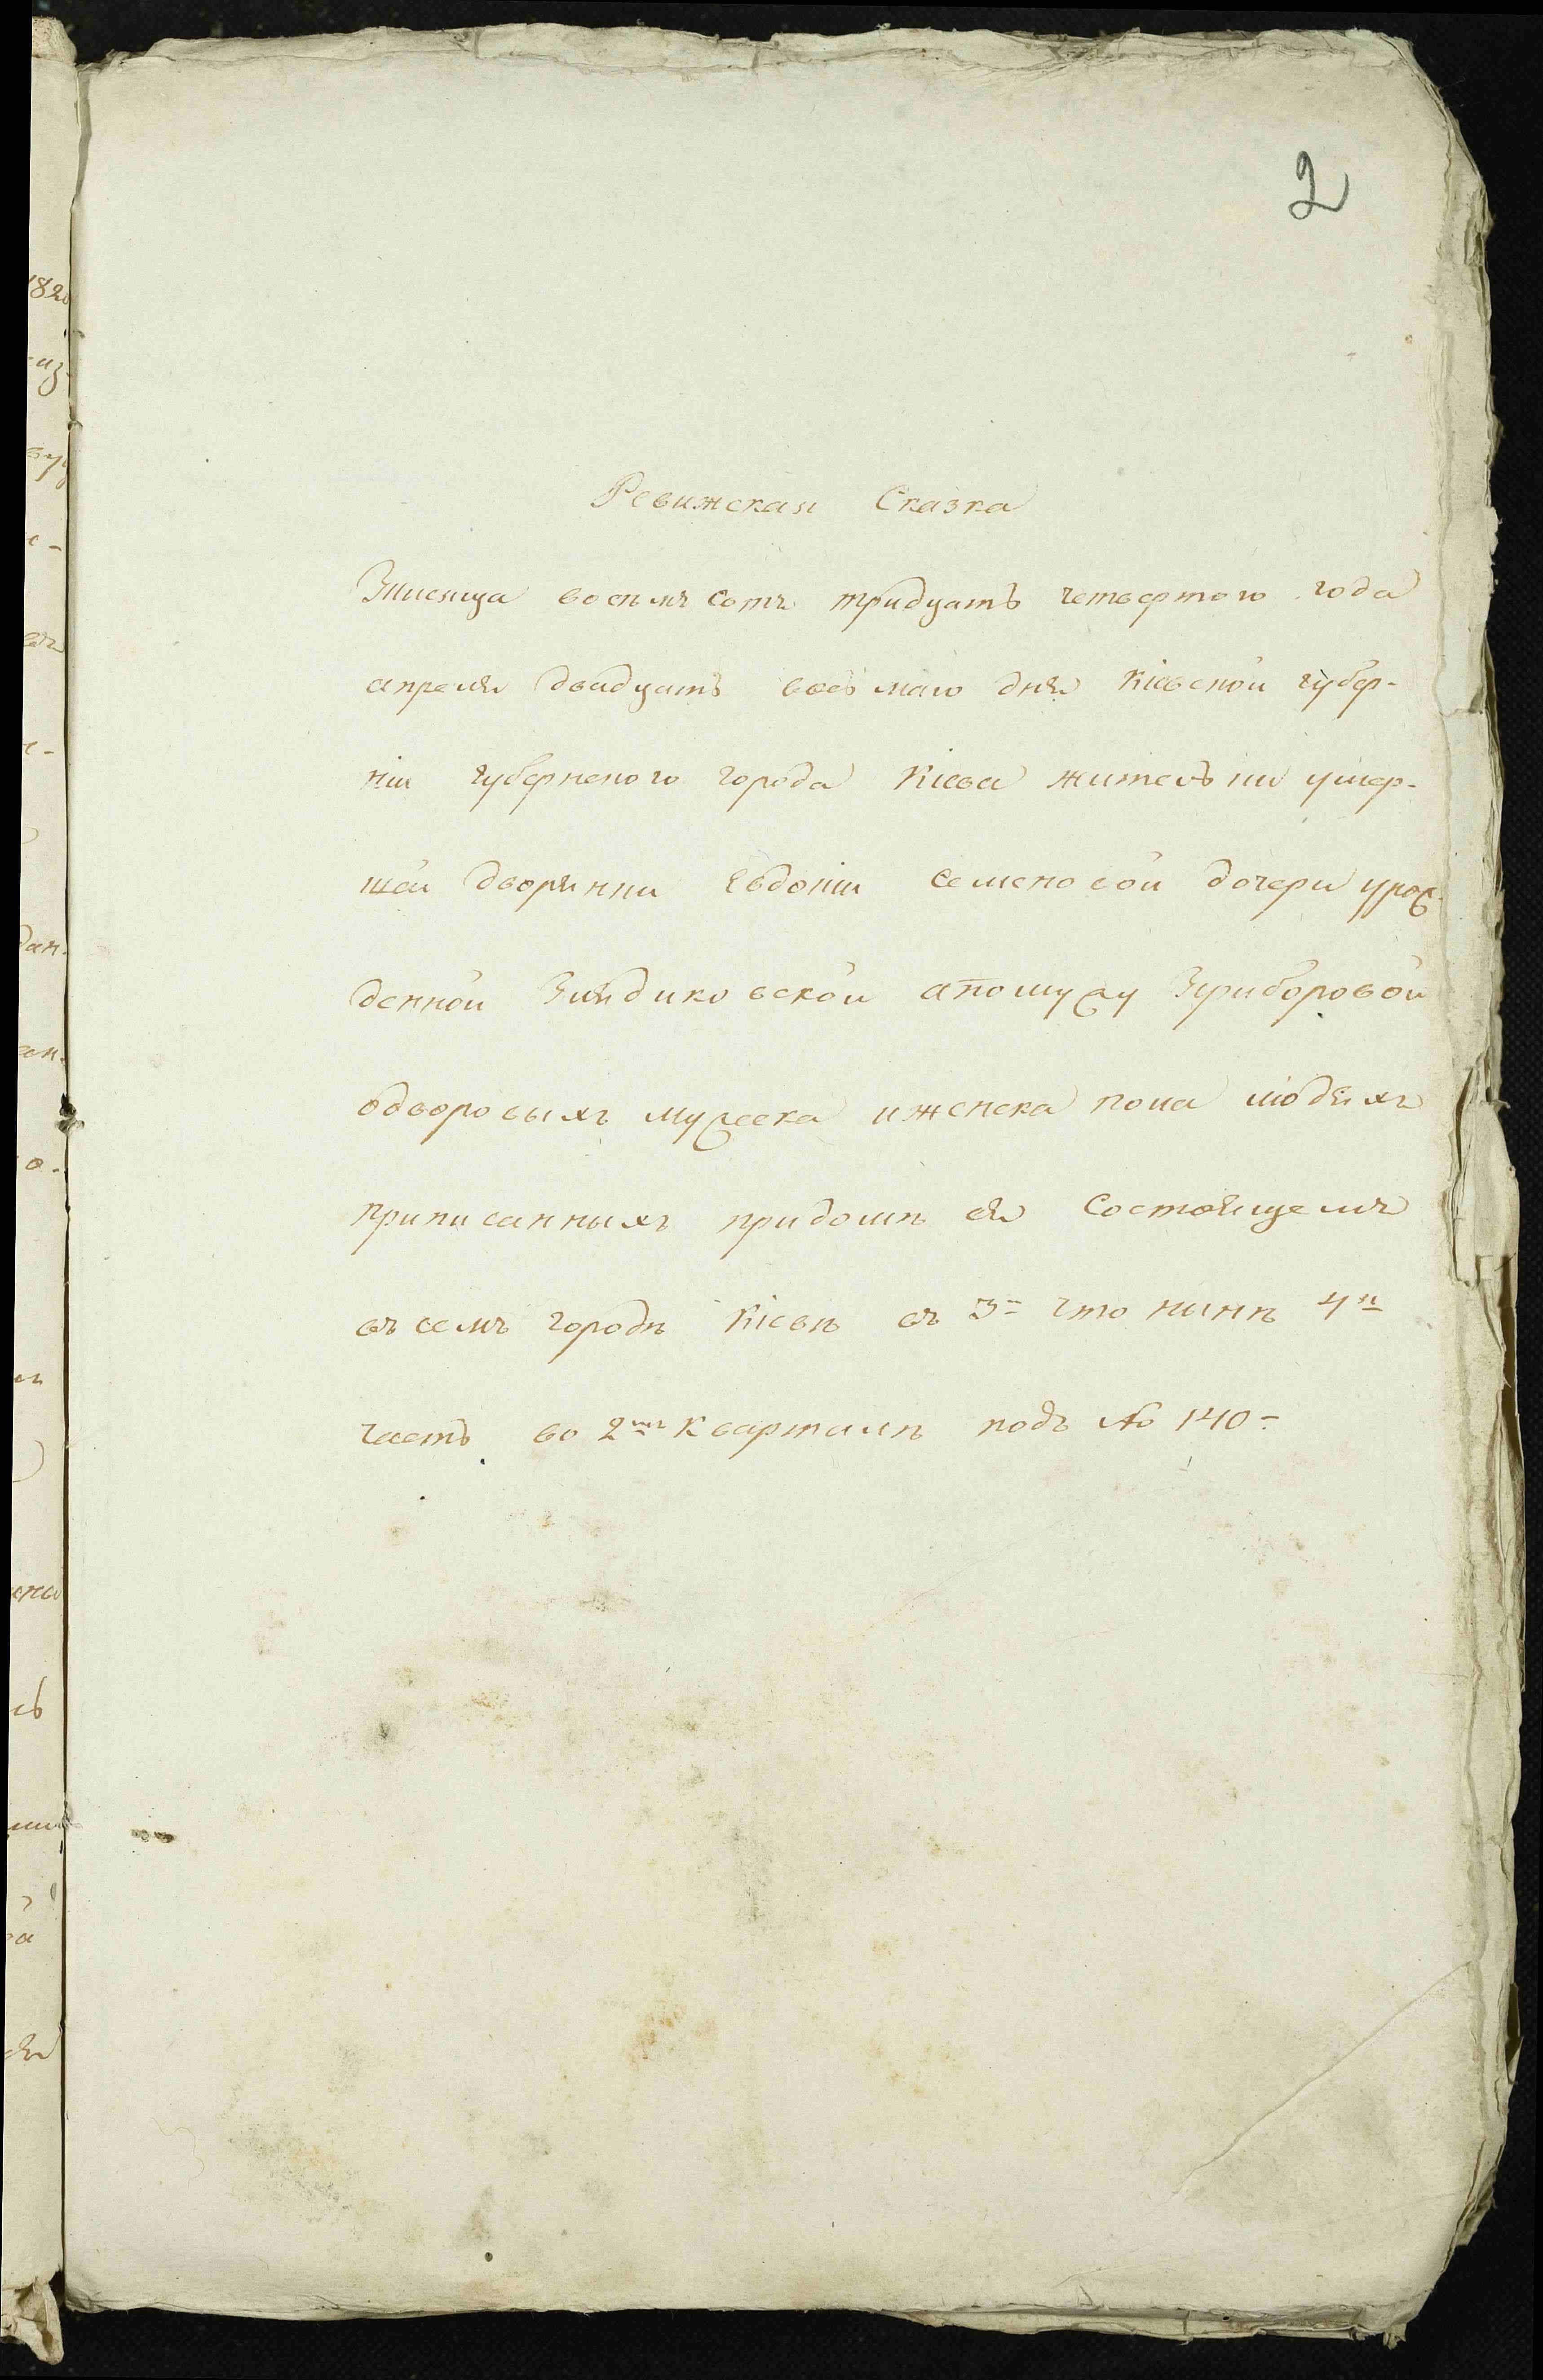 2
Ревижская Сказка
восемъ сотъ тридцать четвертого года
апреля двадцать восьмаго дня Кіевской губер-
ніи губернского города Кіева жителѣки умер-
шей дворянки Евдокіи семеновой дочери урож-
денной апомужу
одворовыхъ мужеска иженска пола людяхъ
приписанныхъ придомѣ ея Состоящемъ
въ семъ городѣ Кіевѣ въ 3й что нынѣ 4й
часть во 2мъ Кварталѣ подъ № 140-